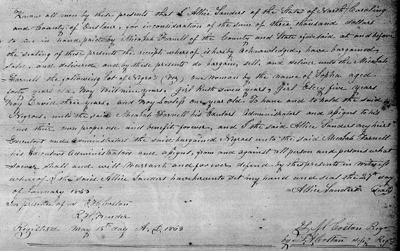 Know all men by these presents that I Allie Sanders of the State of North Carolina
and County of Onslow, for & in consideration of the sum of three thousand dollars
to me in hand paid by Micajah Farnell of the County and State aforesaid at and before
the sealing of these presents the receipt whereof is hereby acknowledged, have bargained
sales, and delivered and by these presents do bargain, sell, and deliver unto the Micajah
Farnell the following lot of Negros (viz) one woman by the name of aged
forty years old, Boy nine years, Girl seven years, Girl five years
Boy David three years, and Boy one year old. To have and to hold the said
Negroes, unto the said Micajah Farnell his Executors Administrators and assigns to his
use their own proper use and benefit forever, and I the said Allie Sanders my heirs
Executors and Administrators the said bargained Negroes unto the said Micajah Farnell
his Executors Administrators and assigns, from and against all persons and persons what
soever shall and will Warrant and forever defend by this present in witness
whereof I the said Allie Sanders have hereunto set my hand and seal this day
of January 1863 Allie Sanders (seal)
In presence of
Registered May 15th day A.D. 1863